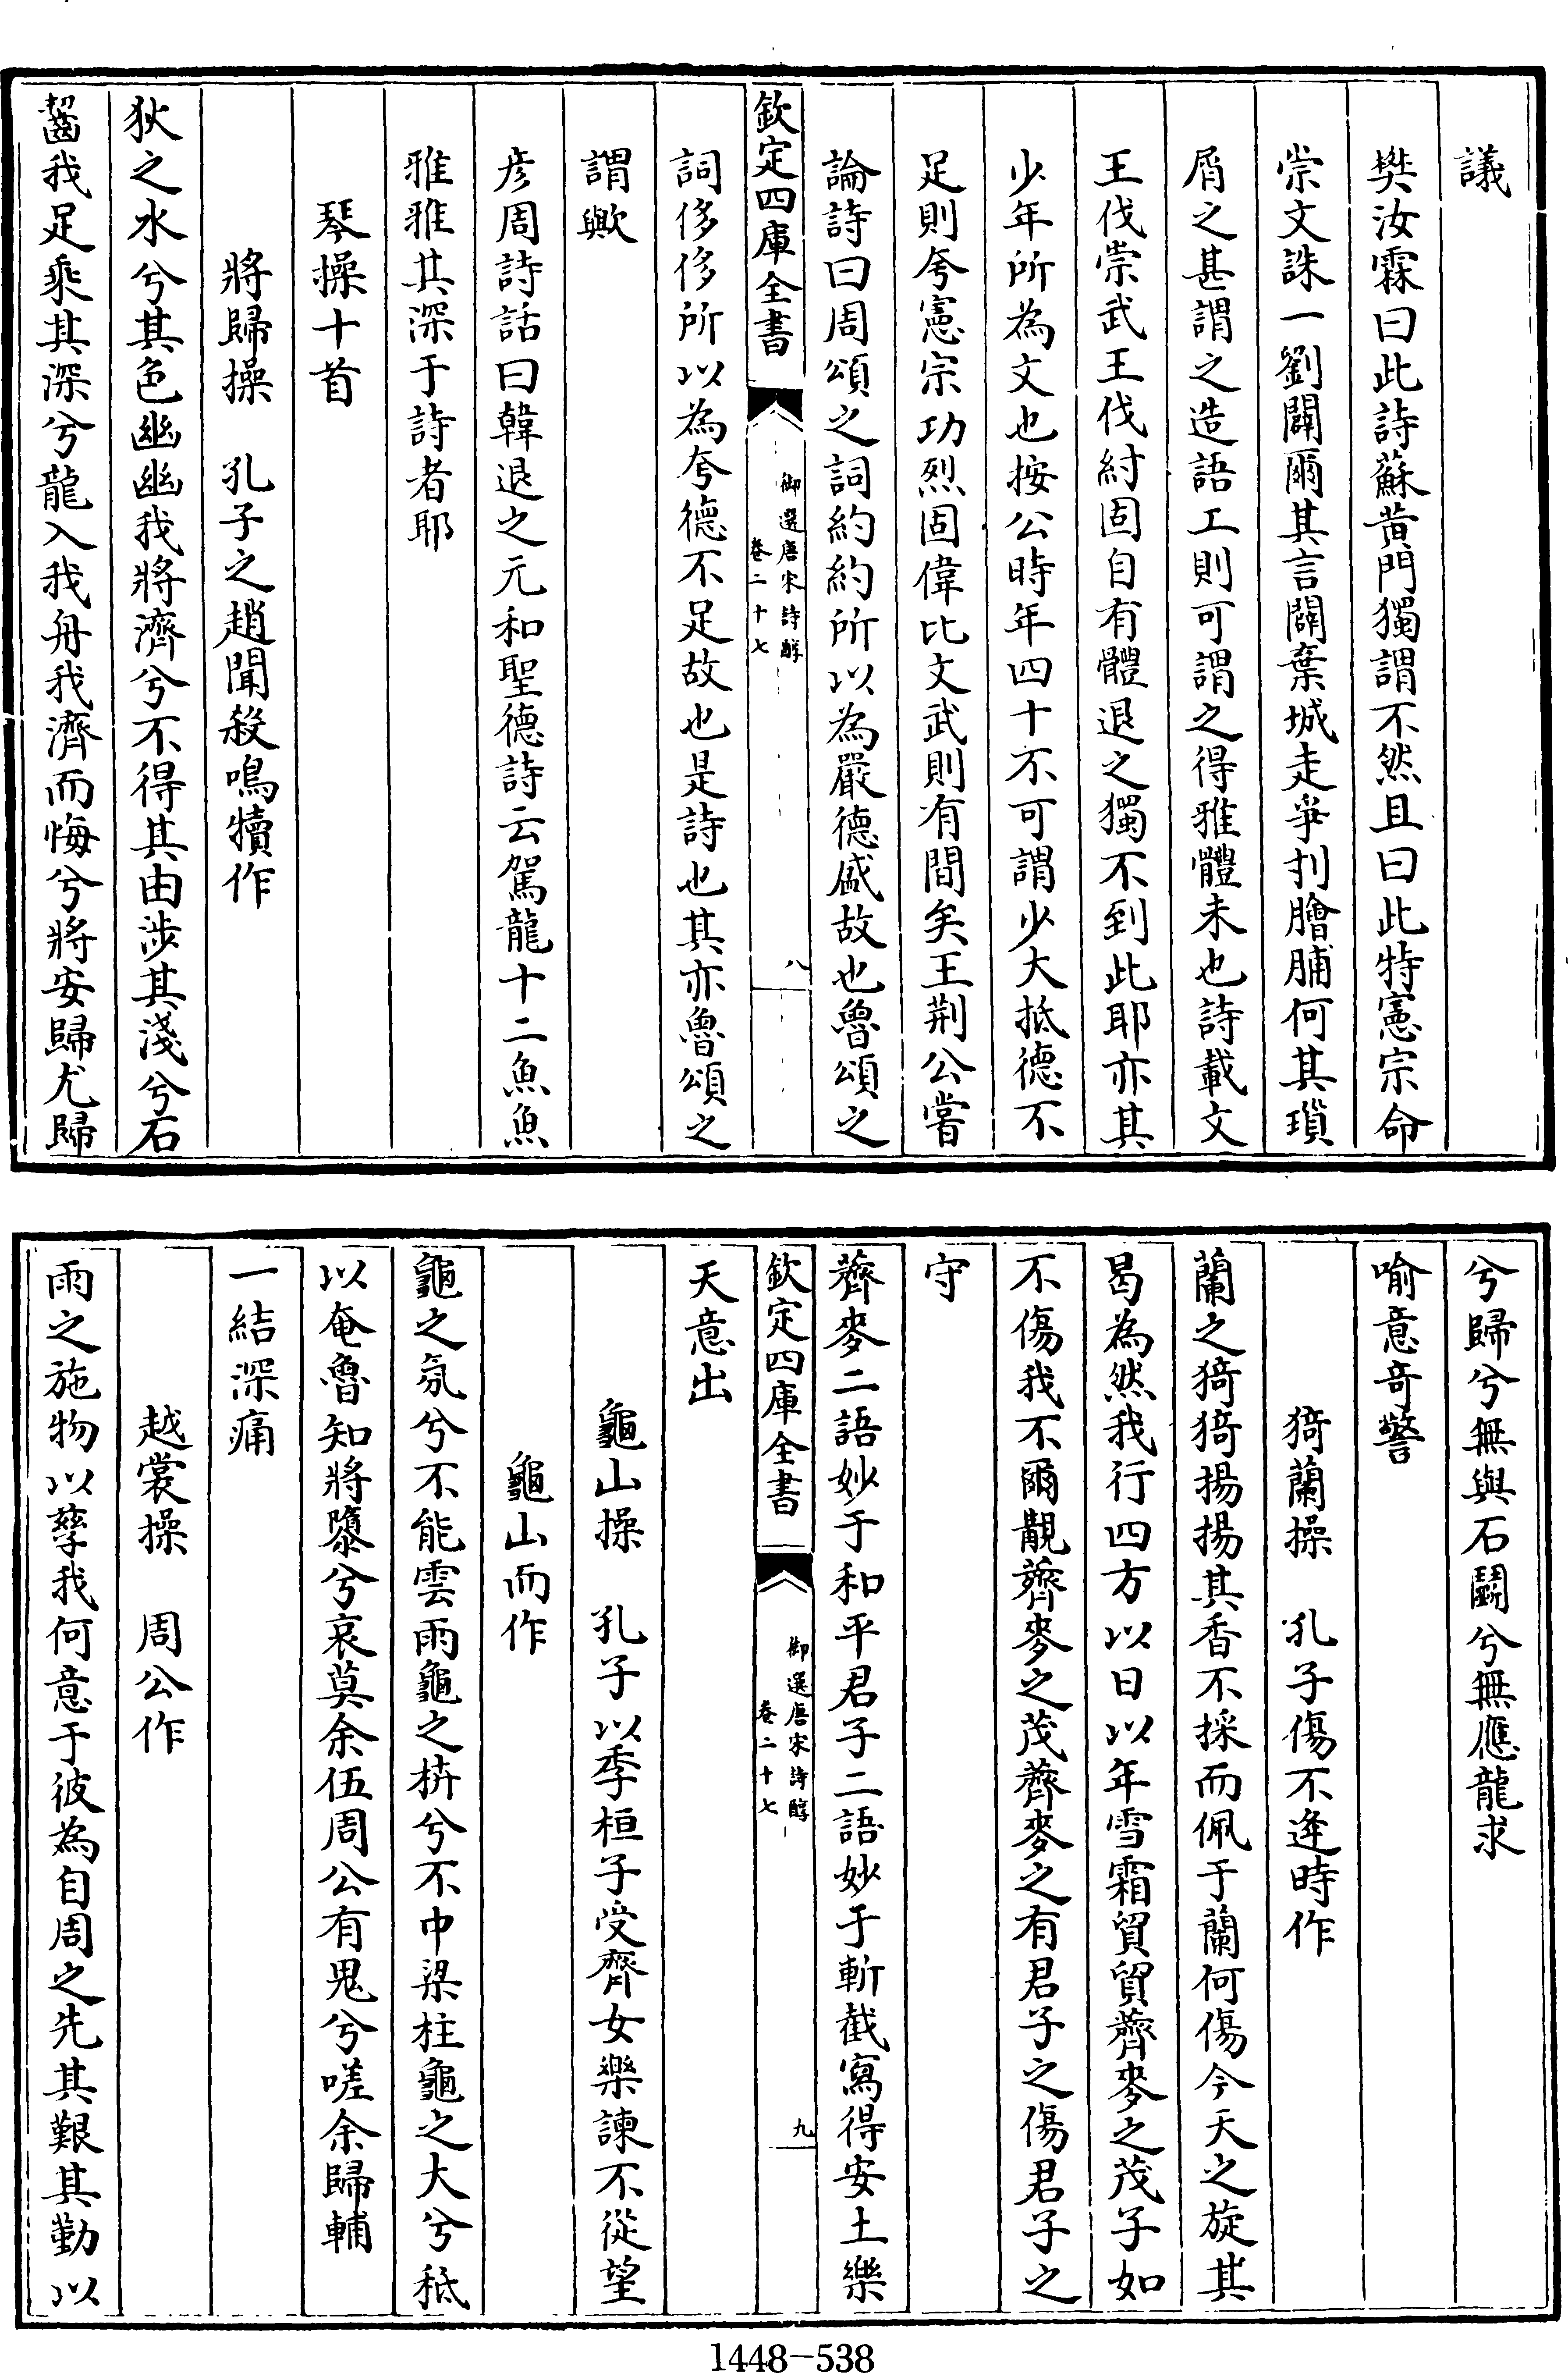 議
樊汝霖曰此詩蘇黄門獨謂不然且曰此特憲宗命
崇文誅一劉闢爾其言闢棄城走爭刋膾脯何其瑣
屑之甚謂之造語工則可謂之得雅體未也詩載文
王伐崇武王伐紂固自有體退之獨不到此耶亦其
少年所為文也按公時年四十不可謂少大抵德不
足則夸憲宗功烈固偉比文武則有間矣王荆公嘗
論詩曰周頌之詞約約所以為嚴德盛故也魯頌之
欽定四庫全書
御選唐宋詩醇
卷二十七
八
詞侈侈所以為夸德不足故也是詩也其亦魯頌之
謂歟
彦周詩話曰韓退之元和聖德詩云駕龍十二魚魚
雅雅其深于詩者耶
琴操十首
將歸操 孔子之趙聞殺鳴犢作
狄之水兮其色幽幽我將濟兮不得其由涉其淺兮石
齧我足乘其深兮龍入我舟我濟而悔兮將安歸尤歸
兮歸兮無與石鬬兮無應龍求
喻意竒警
猗蘭操 孔子傷不逢時作
蘭之猗猗揚揚其香不採而佩于蘭何傷今天之旋其
曷為然我行四方以日以年雪霜貿貿薺麥之茂子如
不傷我不爾覯薺麥之茂薺麥之有君子之傷君子之
守
薺麥二語妙于和平君子二語妙于斬截寫得安土樂
欽定四庫全書
御選唐宋詩醇
卷二十七
九
天意出
龜山操 孔子以季桓子受齊女樂諫不從望
龜山而作
龜之氛兮不能雲雨龜之枿兮不中梁柱龜之大兮秪
以奄魯知將隳兮哀莫余伍周公有鬼兮嗟余歸輔
一結深痛
越裳操 周公作
雨之施物以孳我何意于彼為自周之先其艱其勤以
1448-538